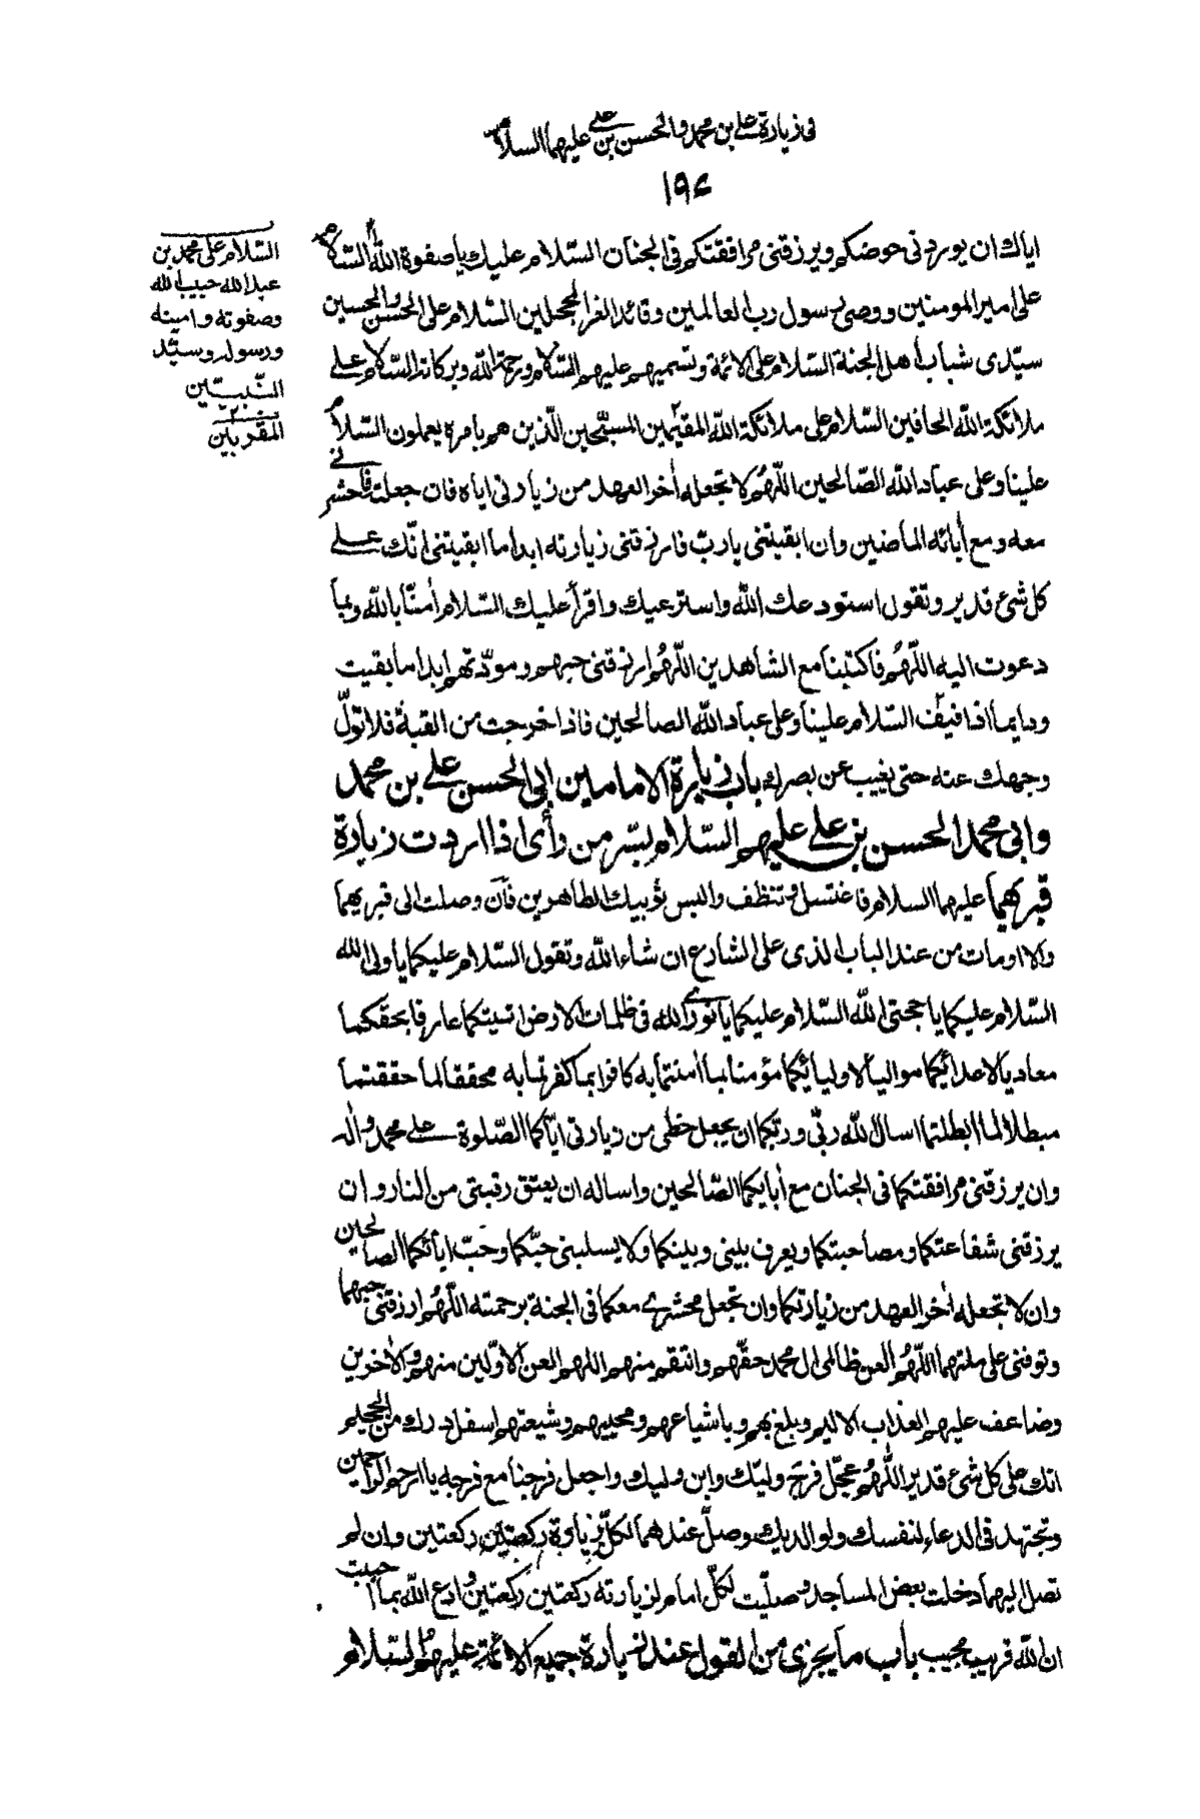 فی زیارة علی بن محمد والحسن بن علی علیهما السلام
۱۹۴
ایاك ان یوردنی حوضکم ویرزقنی مرافقتکم فی الجنان السّلام علیك یا صفوة الله السّلام
علی امیر المومنین ووصی رسول رب العالمین وقائد الغر المحجلین السّلام علی الحسن والحسین
سیّدی شباب أهل الجنة السّلام علی الائمة وتسمیهم علیهم السّلام ورحمة الله وبرکاته السّلام علی
ملائکة الله الحافین السّلام علی ملائکة الله المقیمین المسبّحین الّذین هم بامره یعملون السّلام
علینا وعلی عباد الله الصّالحین اللّهُم لا تجعله أخر العهد من زیارتی ایاه فان جعلته فاحشرنی
معه ومع أبائه الماضین وان ابقیتنی یا ربّ فارزقنی زیارته ابدا ما ابقیتنی انّك علی
کل شئ قدیر وتقول استودعك الله واسترعیك واقرأ علیك السّلام أمنّا بالله وبما
دعوت الیه اللّهُم فاکتبنا مع الشاهدین اللّهُم ارزقنی حبهم ومودّتهم ابدا ما بقیت
ودایما اذا فنیت السّلام علینا وعلی عباد الله الصالحین فاذا خرجت من القبة فلا تولّ
وجهك عنه حتی یغیب عن بصرك باب زیارة الامامین ابی الحسن علی بن محمد
وابی محمد الحسن بن علی علیهم السّلام بسّر من رأی اذا اردت زیارة
قبریهما علیهما السلام فاغتسل وتنظف والبس ثوبیك الطاهرین فان وصلت الی قبریهما
والا اومات من عند الباب الذی علی الشارع ان شاء الله وتقول السّلام علیکما یا ولی الله
السّلام علیکما یا حجتی الله السّلام علیکما یا نوری الله فی ظلمات الارض اتیتکما عارفا بحقکما
معادیا لاعدائکما موالیا لاولیائکما مؤمنا بما أمنتما به کافرا بما کفرتما به محققا لما حققتما
مبطلا لما ابطلتما اسال الله ربّی وربّکما ان یجعل حظی من زیارتی ایّاکما الصّلوة علی محمد واله
وان یرزقنی مرافقتکما فی الجنان مع أبایکما الصّالحین واساله ان یعتق رقبتی من النار وان
یرزقنی شفاعتکما ومصاحبتکما ویعرف بینی وبینکما ولا یسلبنی حبّکما وحبّ ابائکما الصالحین
وان لا تجعله أخر العهد من زیارتکما وان تجعل محشری معکما فی الجنة برحمته اللّهُم ارزقنی حبهما
وتوفنی علی ملتهما اللّهُم العن ظالمی ال محمد حقّهم وانتقم منهم اللهم العن الاوّلین منهم والأخرین
وضاعف علیهم العذاب الالیم وبلغ بهم وباشیاعهم ومحبیهم وشیعتهم اسفل درك من الجحیم
انك علی کل شئ قدیر اللّهُم عجّل فرج ولیّك وابن ولیك واجعل فرجنا مع فرجه یا ارحم الراحمین
وتجتهد فی الدعاء لنفسك ولوالدیك وصلّ عندهما لکلّ زیارة رکعتین رکعتین وان لم
تصل الیهما دخلت بعض المساجد وصلّیت لکلّ امام لزیارته رکعتین رکعتین وادع الله بما احببت
ان الله قریب مجیب باب ما یجزی من القول عند زیارة جمیع الائمّة علیهم السّلام
السّلام علی محمد بن
عبد الله حبیب الله
وصفوته وامینه
ورسوله وسیّد
النّبیّین
المقربین